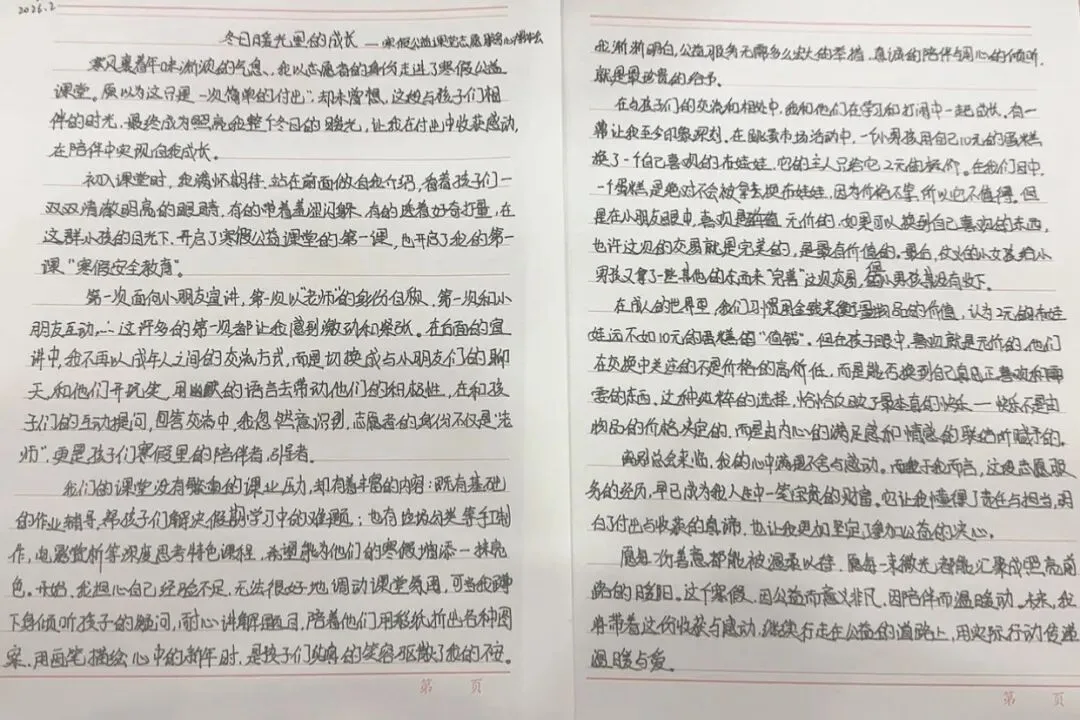 2026.2
冬日暖光里的成长 ——寒假公益课堂志愿服务心得体会
寒风裹着年味渐浓的气息,我以志愿者的身份走进了寒假公益
课堂。原以为这只是一次简单的付出,却未曾想,这段与孩子们相
伴的时光,最终成为照亮我整个冬日的暖光,让我在付出中收获感动,
在陪伴中实现自我成长。
初入课堂时,我满怀期待,站在前面做自我介绍,看着孩子们一
双双清澈明亮的眼睛,有的带着羞涩闪躲,有的透着好奇打量,在
这群小孩的目光下,开启了寒假公益课堂的第一课,也开启了我的第一
课“寒假安全教育”。
第一次面向小朋友宣讲,第一次以“老师”的身份自称,第一次和小
朋友互动……这许多的第一次都让我感到激动和紧张。在台面的宣
讲中,我不再以成年人之间的交流方式,而是切换成与小朋友们的聊
天,和他们开玩笑,用幽默的语言去带动他们的积极性,在和孩
子们的互动提问,回答交流中,我忽然意识到,志愿者的身份不仅是“老
师”,更是孩子们寒假里的陪伴者,引导者。
我们的课堂没有繁重的课业压力,却有着丰富的内容:既有基础
的作业辅导,帮孩子们解决假期学习中的难题;也有垃圾分类等手工制
作,电影赏析等深度思考特色课程,希望能为他们的寒假增添一抹亮
色。开始,我担心自己经验不足,无法很好地调动课堂氛围,可当我蹲
下身倾听孩子的疑问,耐心讲解题目,陪着他们用彩纸折出各种图
案,用画笔描绘心中的新年时,是孩子们纯真的笑容驱散了我的不安。
第 页
我渐渐明白,公益服务无需多么宏大的举措,真诚的陪伴与用心的倾听,
就是最珍贵的给予。
在与孩子们的交流和相处中,我和他们在学习和打闹中一起成长。有一
幕让我至今印象深刻,在跳蚤市场活动中,一个小男孩用自己10元的蛋糕
换了一个自己喜欢的布娃娃,它的主人只给它2元的标价。在我们眼中,
一个蛋糕是绝对不会被拿去换布娃娃,因为价格不等,所以它不值得。但
是在小朋友眼中,喜欢是无价的,如果可以换到自己喜欢的东西,
也许这次的交易就是完美的,是最有价值的。最后,女孩的小女孩给小
男孩又拿了一些其他的东西来“完善”这次交易,但小男孩并没有收下。
在成人的世界里,我们习惯用金钱来衡量物品的价值,认为2元的布娃
娃远不如10元的蛋糕的“值钱”。但在孩子眼中,喜欢就是无价的,他们
在交换中关注的不是价格的高价低,而是能否换到自己真正喜欢和需
要的东西。这种纯粹的选择,恰恰反映了最本真的快乐——快乐不是由
物品的价格决定的,而是由内心的满足感和情感的联结所赋予的。
离别总会来临,我的心中满是不舍与感动。而对于我而言,这段志愿服
务的经历,早已成为我人生中一笔宝贵的财富。它让我懂得了责任与担当,明
白了付出与收获的真谛,也让我更加坚定了参加公益的决心。
愿每一份善意都能被温柔以待,愿每一束微光都能汇聚成照亮前
路的暖阳。这个寒假,因公益而意义非凡,因陪伴而温暖动人。未来,我
将带着这份收获与感动,继续行走在公益的道路上,用实际行动传递
温暖与爱。
第 页